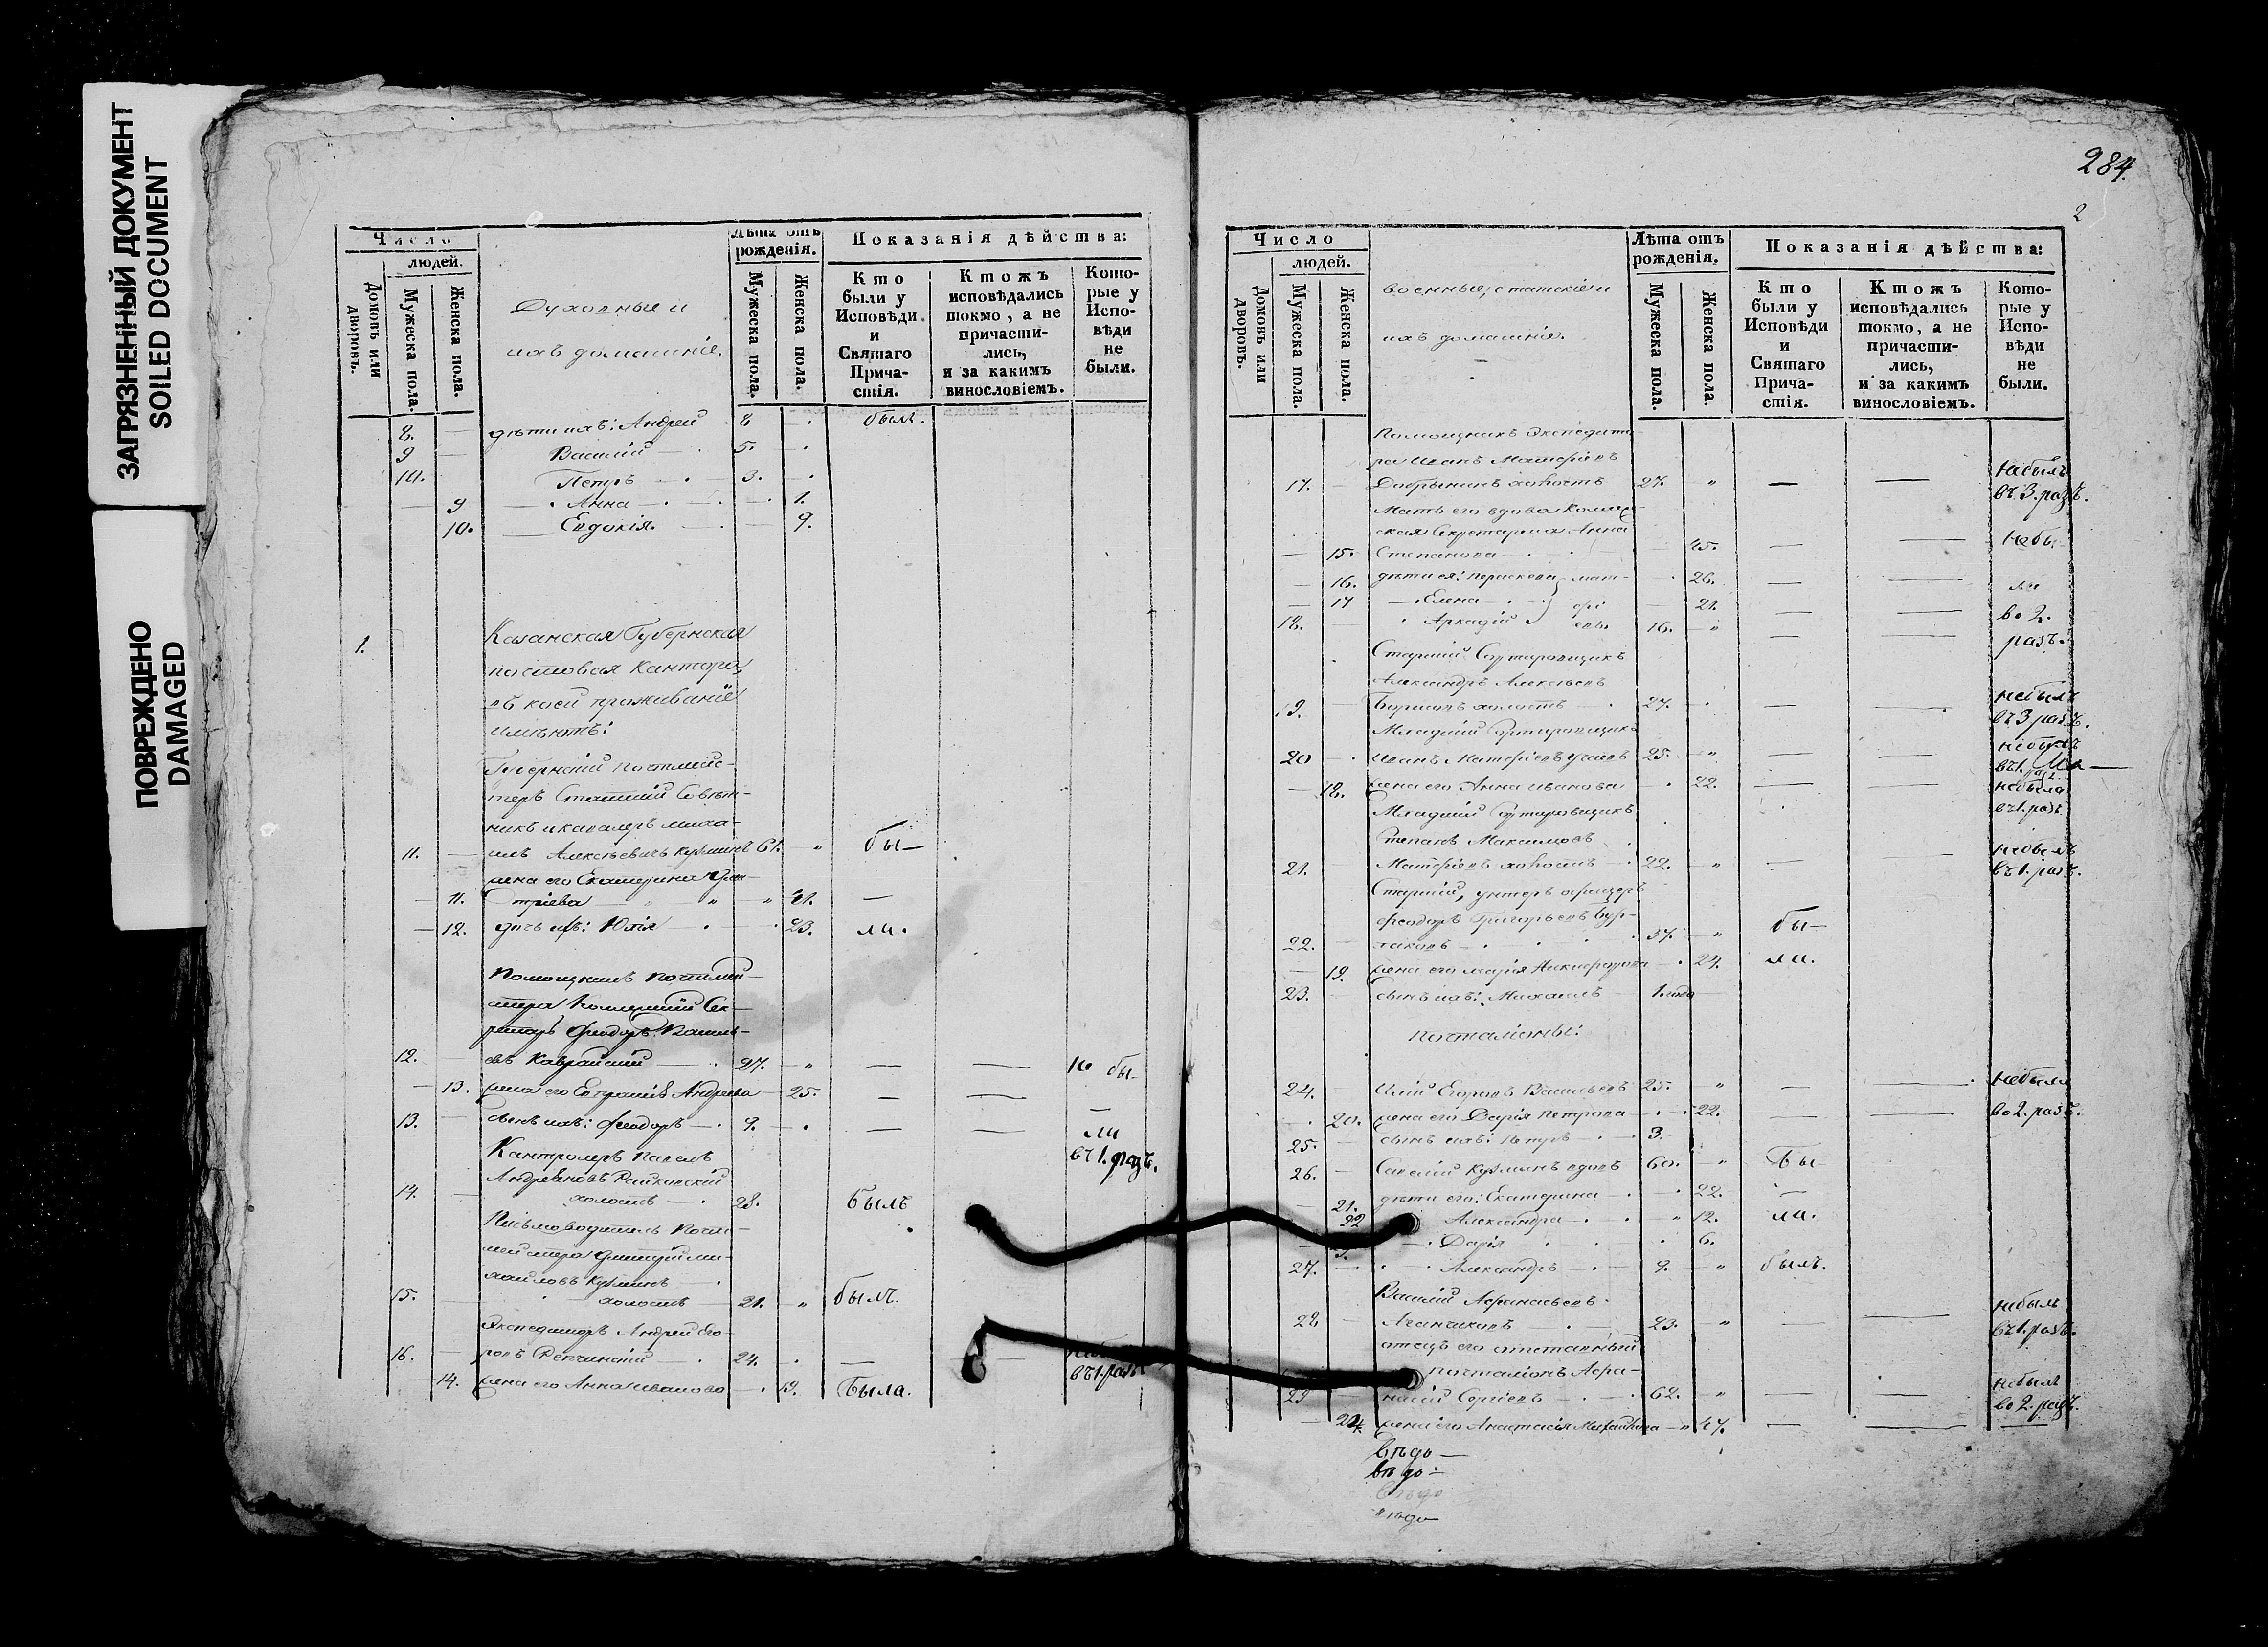 ЗАГРЯЗНЕННЫЙ ДОКУМЕНТ
SOILED DOCUMENT
ПОВРЕЖДЕНО
DAMAGED
Число
людей.
Домовъ или дворовъ.
Мужеска пола.
Женска пола.
Духовныя и
ихъ домашніе.
Лѣта отъ рожденія.
Мужеска пола.
Женска пола.
Показанія дѣйства:
Кто были у Исповѣди и Святаго Прича-стія.
Ктожъ исповѣдались токмо, а не причасти-лись, и за какимъ винословіемъ.
Кото-рые у Испо-вѣди не были.
8. — дѣти ихъ: Андрей 8 — былъ.
9 — Василій — 5.
10. Петръ — 3.
— 9 Анна — 1.
10. Евдокія. — 9.
1. Казанская Губернская
почтовая Кантора,
въ коей проживаніе
имѣютъ:
Губернскій почтмейс-
теръ Статскій Совѣт-
никъ и кавалеръ Миха-
11. — илъ Алексѣевичъ Кузминъ 61. „ бы—
жена его Екатерина Дми-
— 11. тріева „ „ 41. —
— 12. дочь ихъ: Юлія — 23. ли.
Помощникъ Почтмей-
стера Коллежскій Сек-
ретарь Феодоръ Василь-
12. — евъ Каврайскій — 27. „ — — не бы—
— 13. жена его Евпраксія Андреева — 25. — — —
13. — сынъ ихъ: Феодоръ — 9. — — ли
Кантролеръ Павелъ въ 1. разъ.
Андреяновъ Райковскій
14. — холостъ — 28. былъ
Письмоводитель Почт-
мейстера Дмитрій Ми-
хайловъ Кузминъ —
15. — холостъ — 21. „ былъ.
Экспедиторъ Андрей Его-
16. — ровъ — 24. —
въ 1. разъ
14. жена его Анна Иванова — 19. Была.
284.
2
Число
людей.
Домовъ или дворовъ.
Мужеска пола.
Женска пола.
военныя, статскіе и
ихъ домашніе.
Лѣта отъ рожденія.
Мужеска пола.
Женска пола.
Показанія дѣйства:
Кто были у Исповѣди и Святаго Прича-стія.
Ктожъ исповѣдались токмо, а не причасти-лись, и за какимъ винословіемъ.
Кото-рые у Испо-вѣди не были.
Помощникъ Экспедито-
ра Иванъ Матфіевъ небылъ
17. — Добрынинъ холостъ 27. „ — — въ 3. разъ.
Мать его вдова Коллеж-
ская Секретарша Анна
— 15. Степанова — 45. — — небы-
— 16. дѣти ея: Параскева мат- 26. — — ли
— 17 Елена фі- 21. — — во 2.
18. — Аркадій евы 16. „ — — разъ.
Старшій Сортировщикъ
Александръ Алексѣевъ небылъ
19. — Борисовъ холостъ — 27. — — въ 3 разъ.
Младшій Сортировщикъ
20 Иванъ Матфіевъ 25. „ — — небылъ въ 1. разъ
— 18. жена его Анна Иванова 22. — — небыла въ 1. разъ
Младшій Сортировщикъ
Степанъ Максимовъ
21. Матфіевъ холостъ — 22. „ — — небылъ въ 1. разъ.
Старшій, унтеръ офицеръ
Феодоръ Григорьевъ Бур-
22. — лаковъ — 37. „ бы—
— 19. жена его Марія Никифорова — 24. ли.
23. — сынъ ихъ: Михаилъ — 1. года
почталіоны:
24. Илій Егоровъ Васильевъ 25. „ — — небыли
20. жена его Дарія Петрова — 22. — — во 2. разъ.
25. — сынъ ихъ: Петръ — 3.
26. — Савелій Кузминъ вдовъ 60. „ Бы
— 21. дѣти его: Екатерина — 22. —
22 Александра — „ 12. ли.
Дарія 6.
27. — Александръ — 9. „ былъ.
Василій Афанасьевъ
28 — Аганчиковъ — 23. „ — — небылъ въ 1. разъ.
отецъ его отставный
почталіонъ Афа-
29 — насій Сергіевъ — 62. „ — — небылъ во 2. разъ.
— 24. жена его Анастасія Михайлова — „ 47. — — —
Вѣдо—
вѣдо—